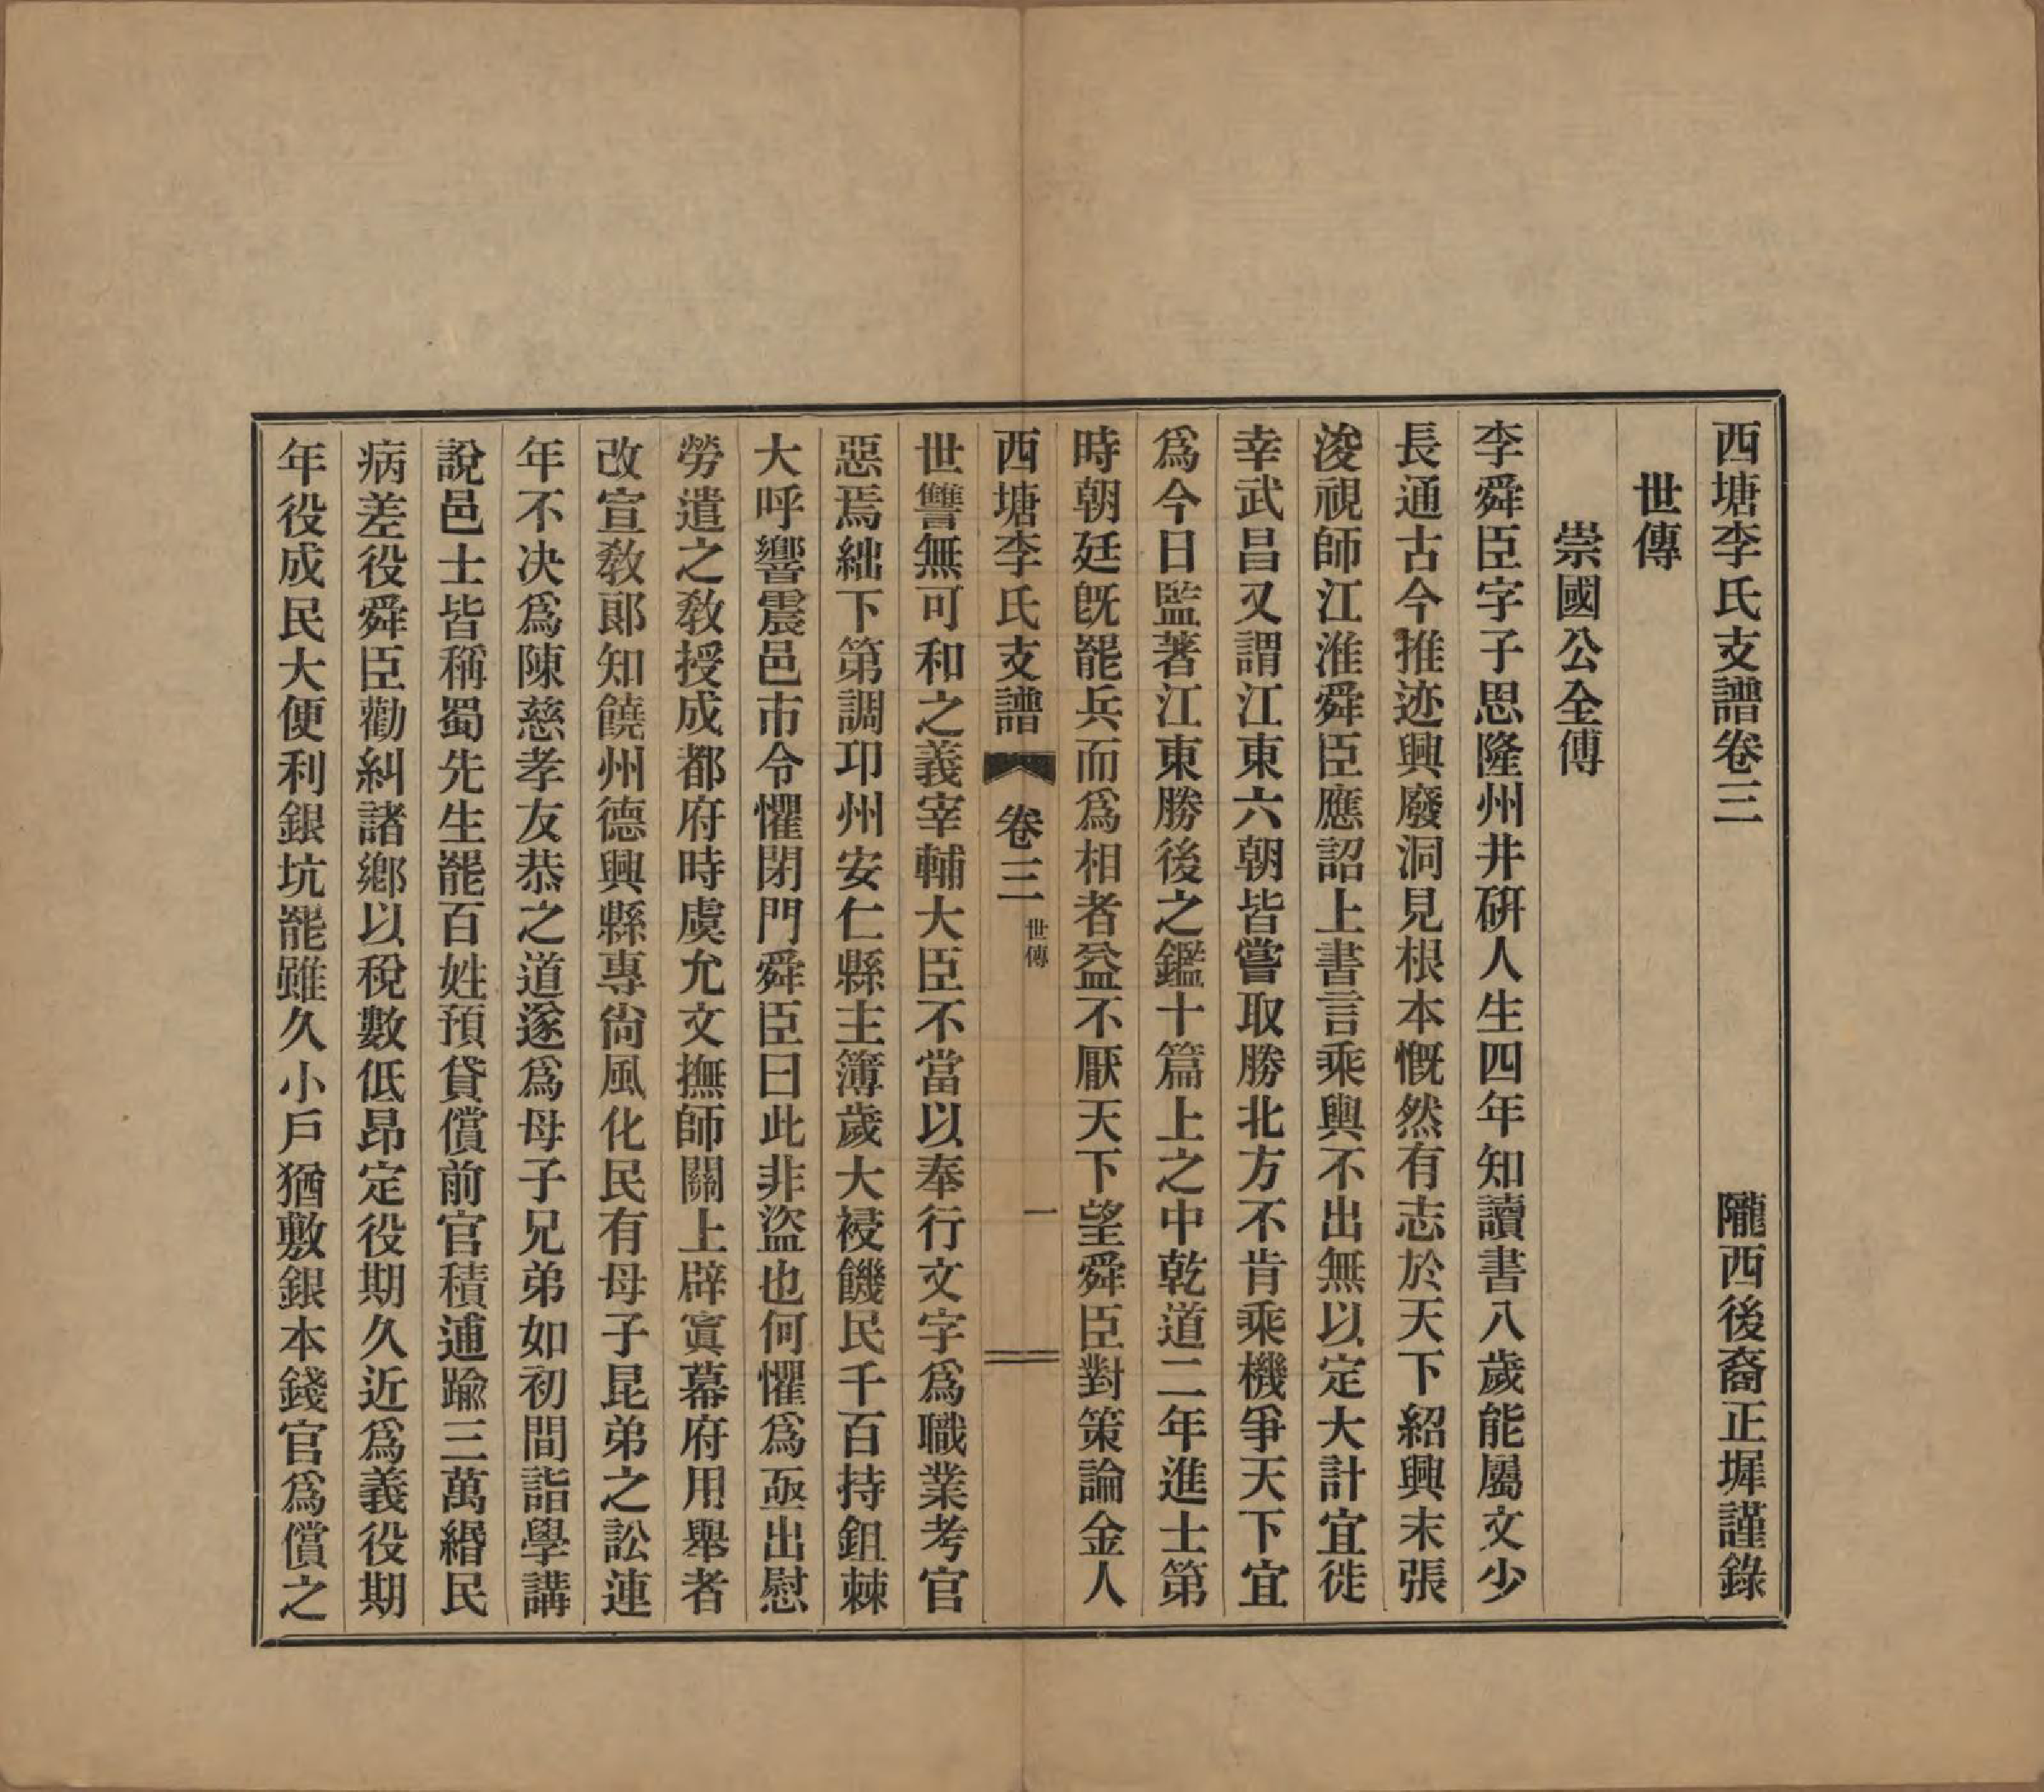 西塘李氏支譜卷三　　隴西後裔正墀謹錄
世傳
崇國公全傳
李舜臣字子思隆州井研人生四年知讀書八歲能屬文少
長通古今推迹興廢洞見根本慨然有志於天下紹興末張
浚視師江淮舜臣應詔上書言乘輿不出無以定大計宜徙
幸武昌又謂江東六朝皆嘗取勝北方不肯乘機爭天下宜
爲今日監著江東勝後之鑑十篇上之中乾道二年進士第
時朝廷旣罷兵而爲相者益不厭天下望舜臣對策論金人
西塘李氏支譜　卷三　世傳　一
世讐無可和之義宰輔大臣不當以奉行文字爲職業考官
惡焉絀下第調卭州安仁縣主簿歲大祲饑民千百持鉏棘
大呼響震邑市令懼閉門舜臣曰此非盜也何懼爲亟出慰
勞遣之敎授成都府時虞允文撫師關上辟寘幕府用舉者
改宣敎郞知饒州德興縣專尙風化民有母子昆弟之訟連
年不决爲陳慈孝友恭之道遂爲母子兄弟如初間詣學講
說邑士皆稱蜀先生罷百姓預貸償前官積逋踰三萬緡民
病差役舜臣勸糾諸鄕以稅數低昂定役期久近爲義役期
年役成民大便利銀坑罷雖久小戶猶敷銀本錢官爲償之